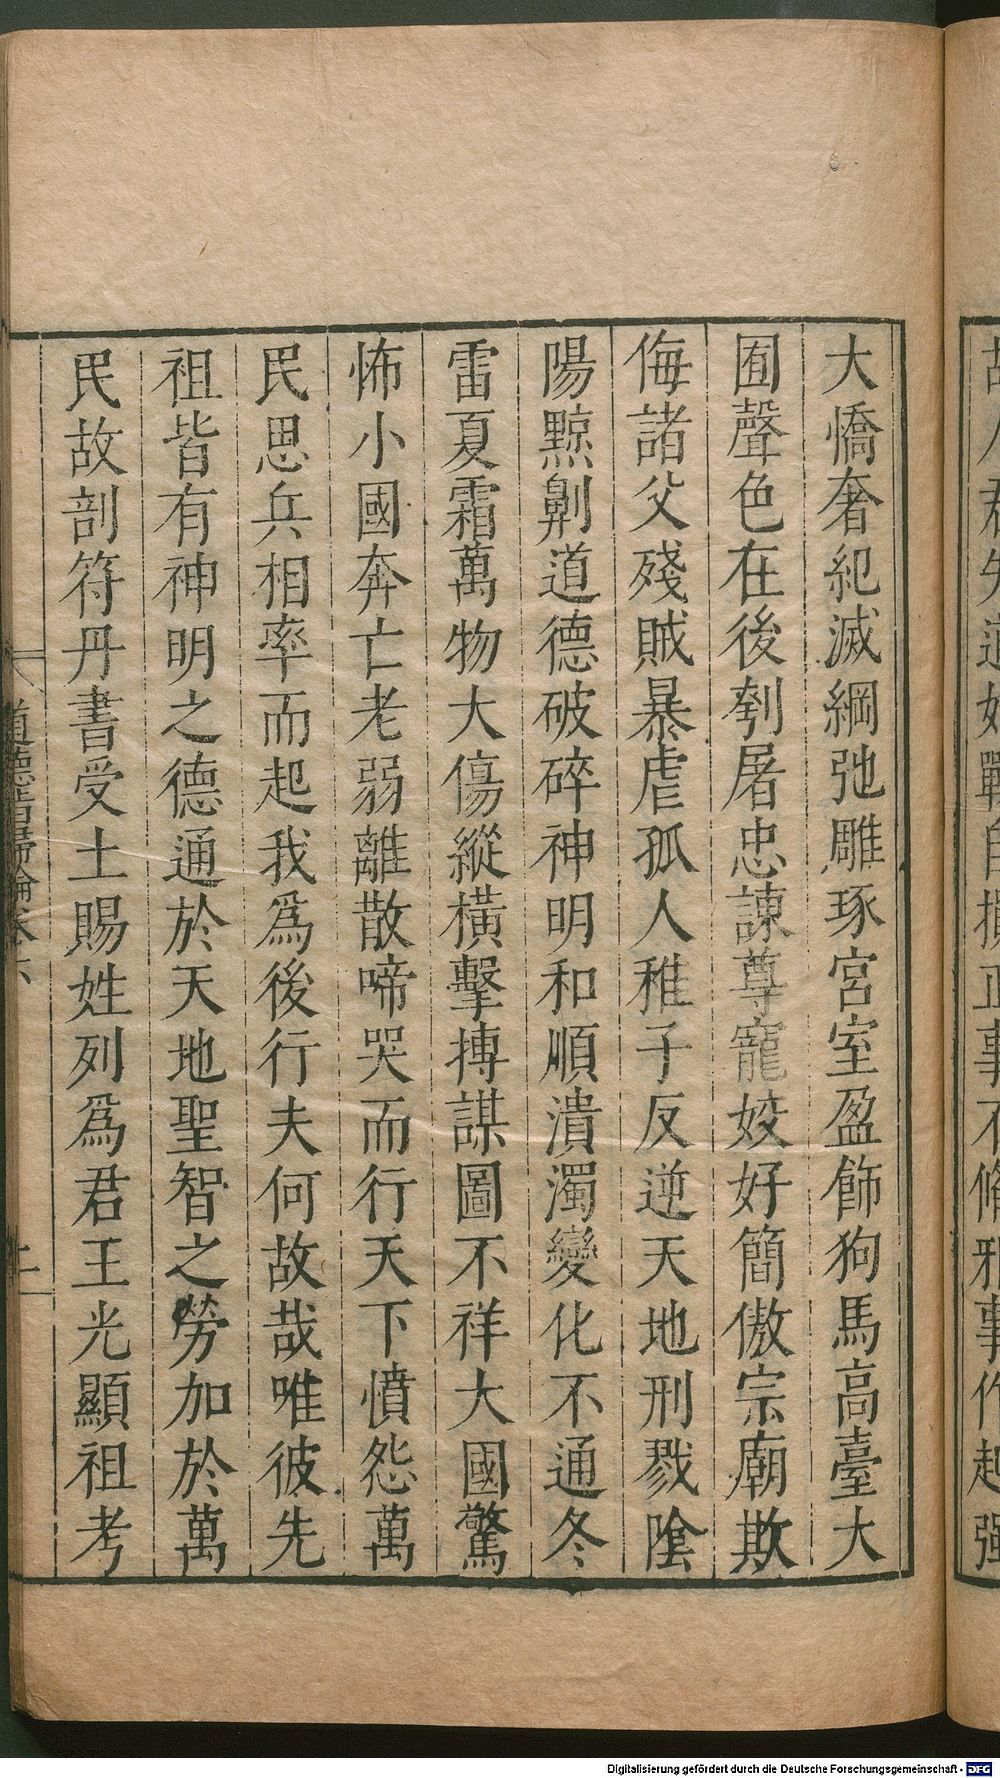 大憍奢紀滅綱弛雕琢宮室盈飾狗馬高臺大
囿聲色在後刳屠忠諫尊寵姣好簡傲宗廟欺
侮諸父殘賊暴虐孤人稚子反逆天地刑戮陰
陽黥劓道德破碎神明和順潰濁變化不通冬
雷夏霜萬物大傷縱橫擊搏謀圖不祥大國驚
怖小國奔亡老弱離散啼哭而行天下憤怨萬
民思兵相率而起我爲後行夫何故哉唯彼先
祖皆有神明之德通於天地聖智之勞加於萬
民故剖符丹書受土賜姓列爲君王光顯祖考
道德指歸論卷六
Digitalisierung gefördert durch die Deutsche Forschungsgemeinschaft - DFG